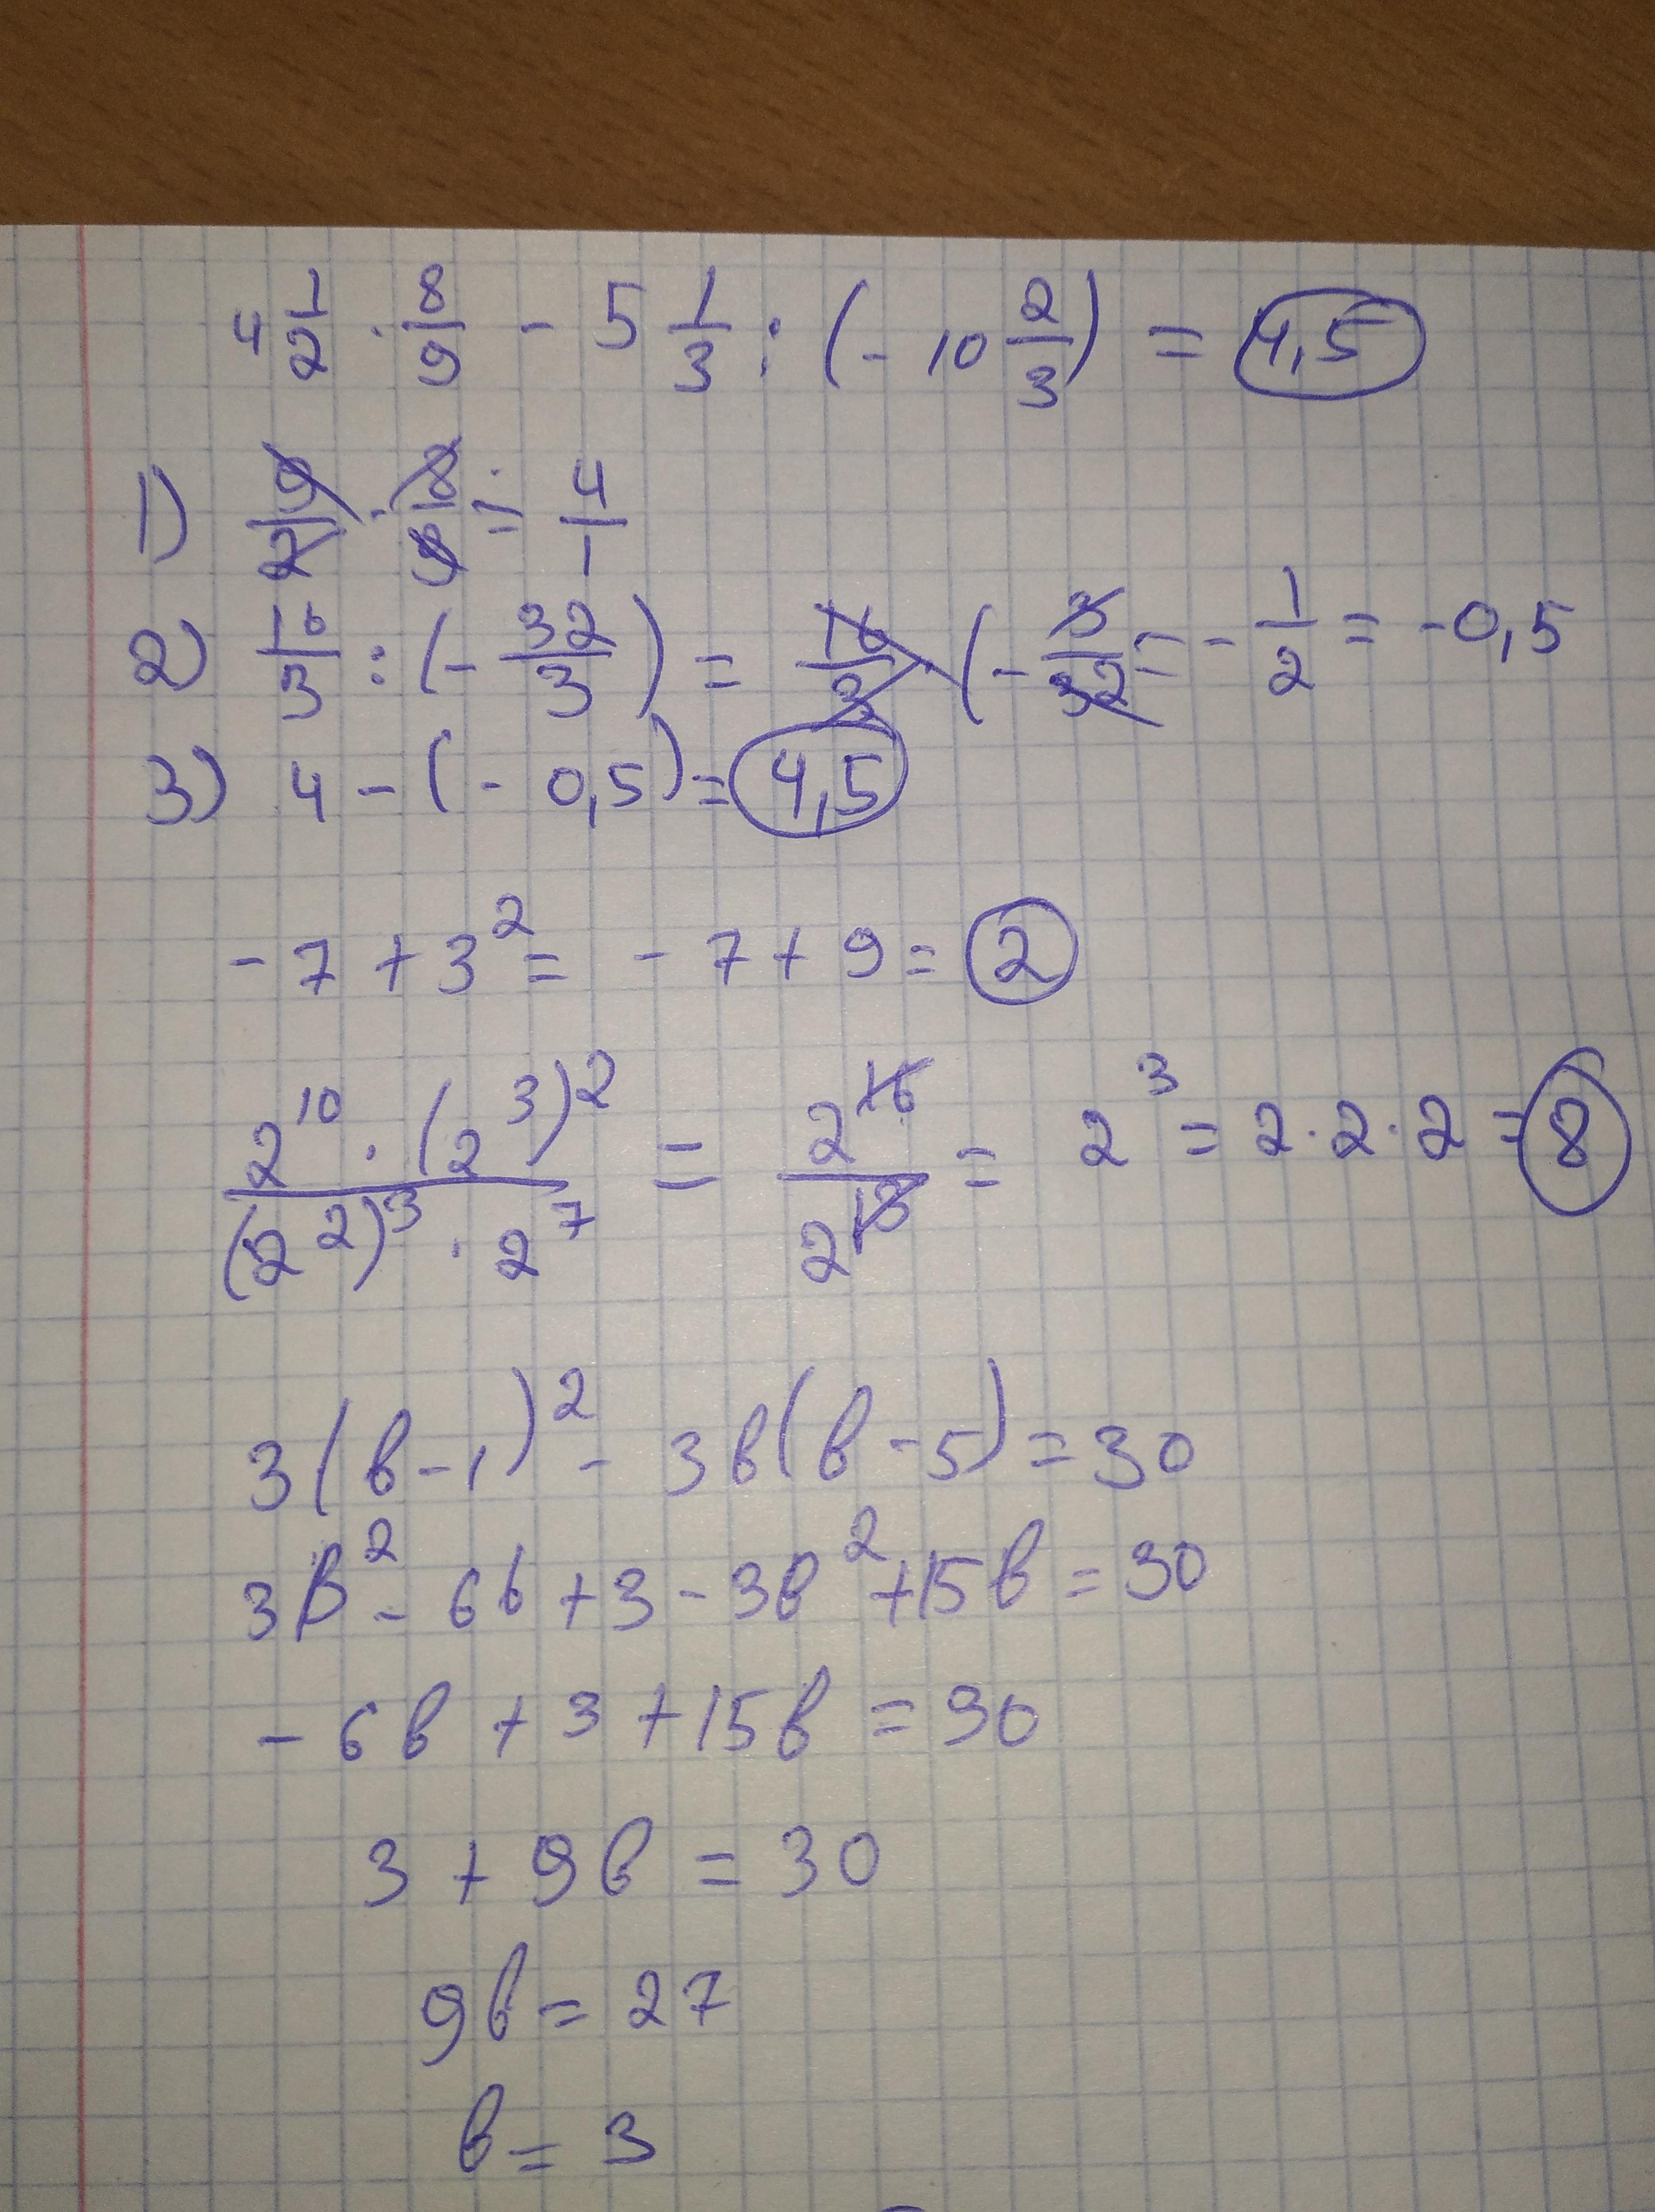 4 1/2 · 8/9 - 5 1/3 : (- 10 2/3) = 4,5
1) 9/2 · 8/9 = 4/1
2) 16/3 : (- 32/3) = 16/3 · (- 3/32 = - 1/2 = -0,5
3) 4 - (- 0,5) = 4,5
- 7 + 3² = - 7 + 9 = 2
2¹⁰ · (2³)² / (2²)³ · 2⁷ = 2¹⁶ / 2¹³ = 2³ = 2 · 2 · 2 = 8
3(в - 1)² - 3в(в - 5) = 30
3в² - 6в + 3 - 3в² + 15в = 30
- 6в + 3 + 15в = 30
3 + 9в = 30
9в = 27
в = 3